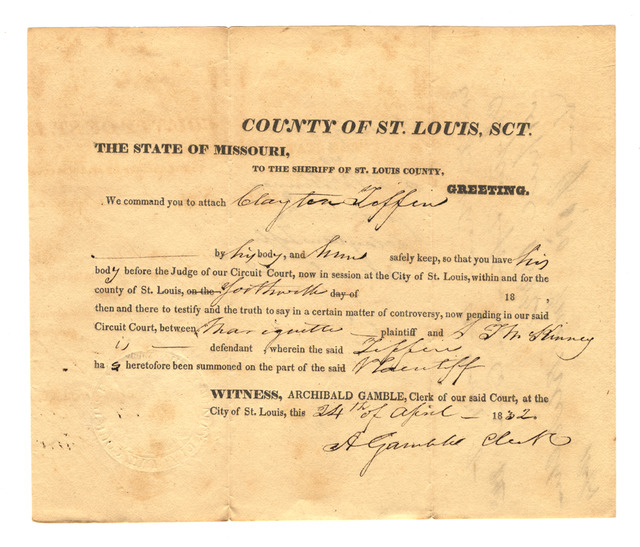 COUNTY OF ST. LOUIS, SCT.
THE STATE OF MISSOURI,
TO THE SHERIFF OF ST. LOUIS COUNTY,
GREETING.
We command you to attach Clayton Tiffin
by his body, and him safely keep, so that you have his
body before the Judge of our Circuit Court, now in session at the City of St. Louis, within and for the
county of St. Louis, on the forthwith day of 18 ,
then and there to testify and the truth to say in a certain matter of controversy, now pending in our said
Circuit Court, between Marguette plaintiff and S McKinney
is defendant, wherein the said Tiffin
has heretofore been summoned on the part of the said Plaintiff
WITNESS, ARCHIBALD GAMBLE, Clerk of our said Court, at the
City of St. Louis, this 24th of April 1832
A Gamble Clerk